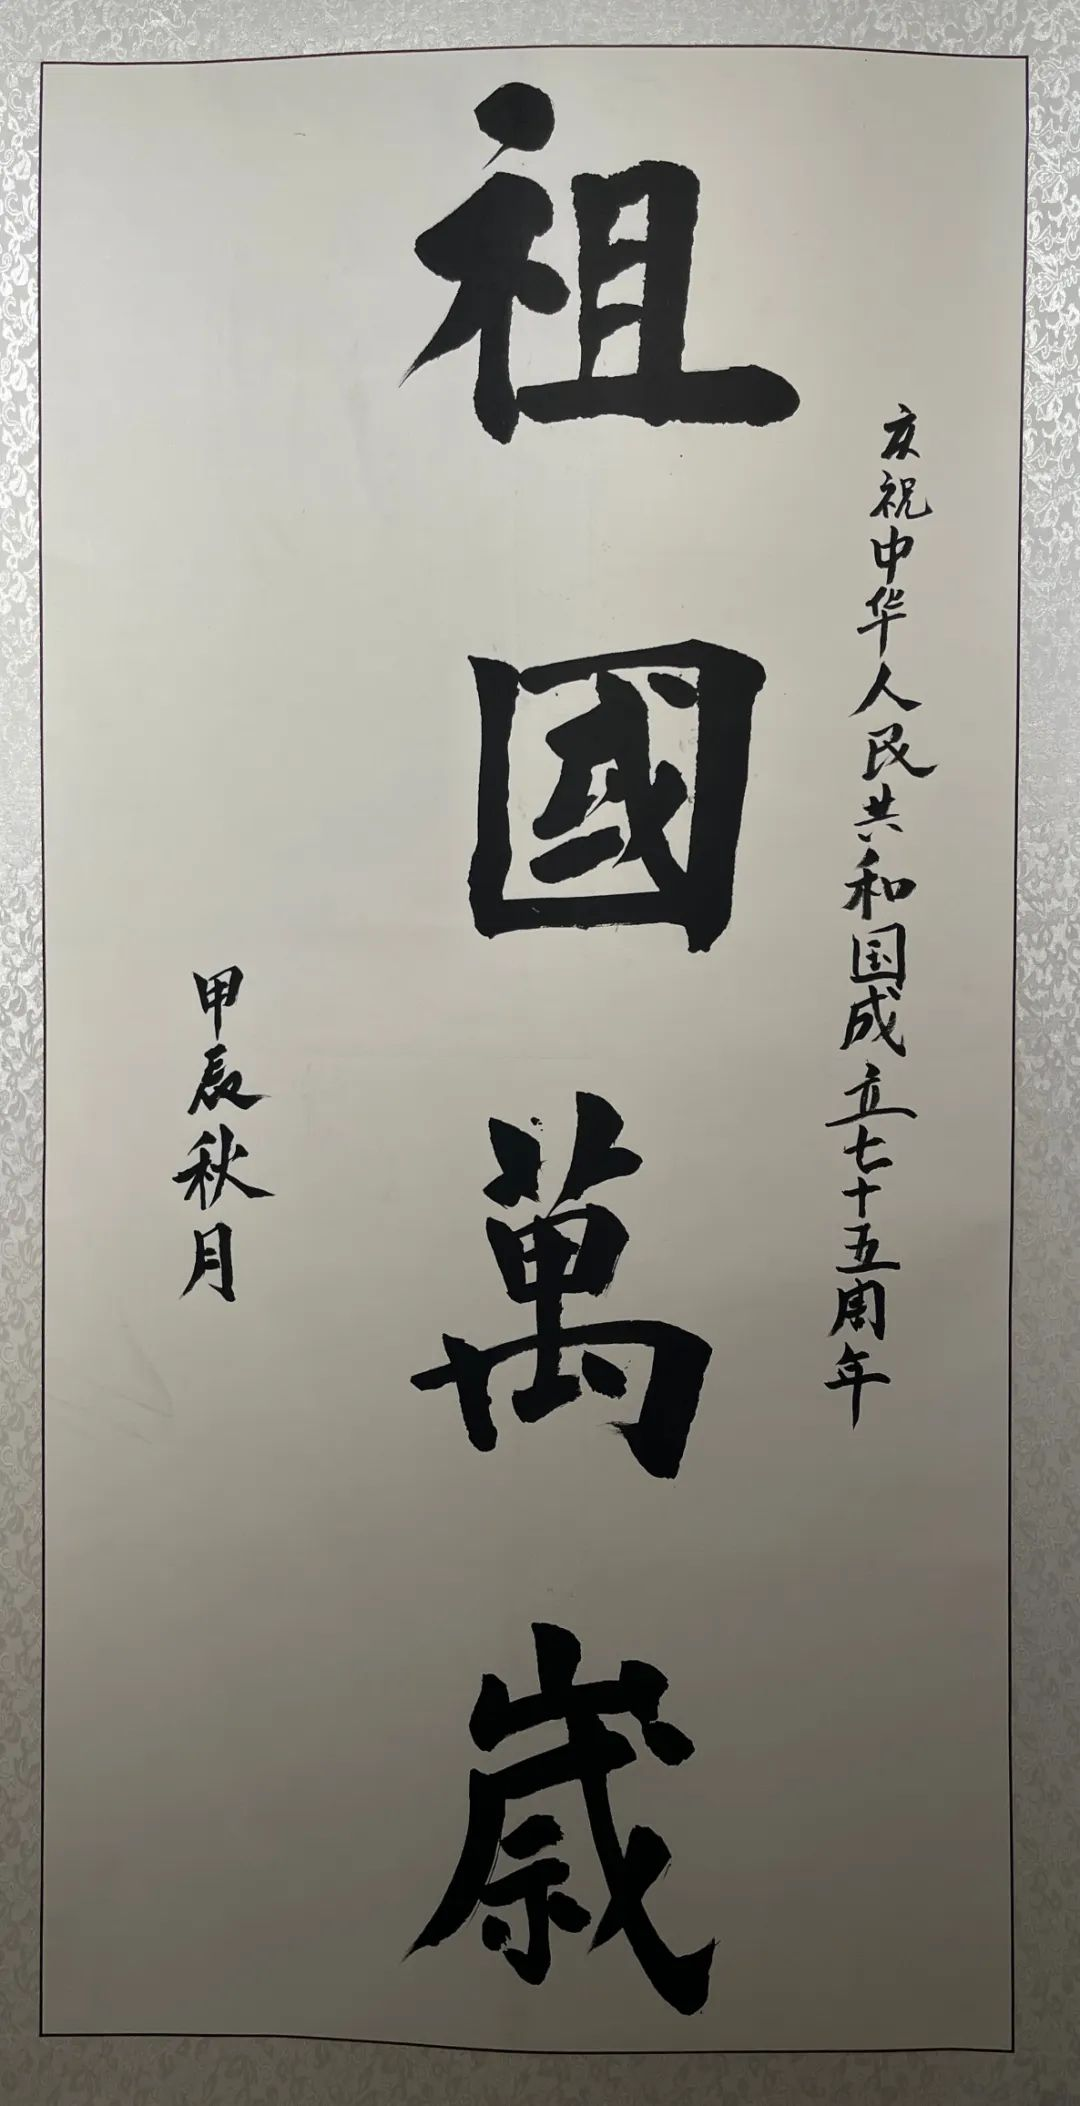 庆祝中华人民共和国成立七十五周年
祖國萬歲
甲辰秋月